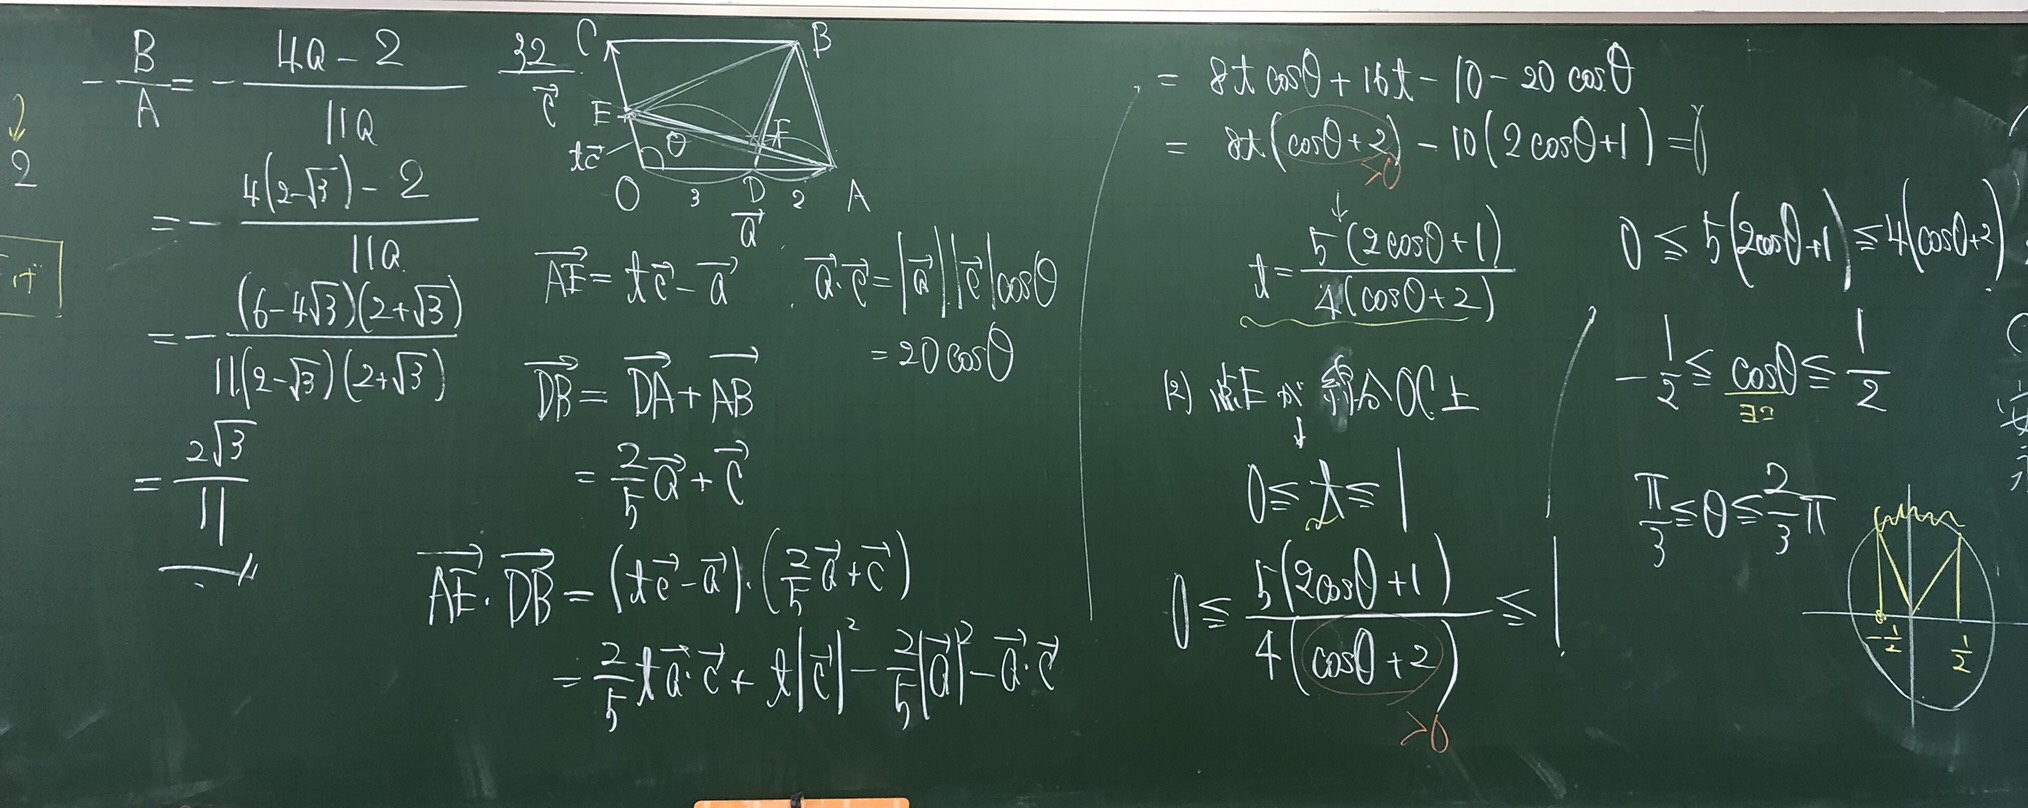 2
- B/A = - (4a - 2)/(11a)
= - (4(2-√3) - 2)/(11a)
= - ((6-4√3)(2+√3))/(11(2-√3)(2+√3))
= 2√3/11
32
C B
c→
E F
tc→ θ
O 3 D 2 A
a→
AE→ = tc→ - a→
a→・c→ = |a→||c→|cosθ
= 20cosθ
DB→ = DA→ + AB→
= 2/5 a→ + c→
AE→・DB→ = (tc→ - a→)・(2/5 a→ + c→)
= 2/5 t a→・c→ + t|c→|² - 2/5|a→|² - a→・c→
= 8t cosθ + 16t - 10 - 20 cosθ
= 8t(cosθ+2) - 10(2cosθ+1) = 0
>0
↓
t = 5(2cosθ+1)/4(cosθ+2)
(2) 点Eが 線分OC上
↓
0 ≦ t ≦ 1
0 ≦ 5(2cosθ+1)/4(cosθ+2) ≦ 1
>0
0 ≦ 5(2cosθ+1) ≦ 4(cosθ+2)
-1/2 ≦ cosθ ≦ 1/2
π/3 ≦ θ ≦ 2/3 π
-1/2 1/2